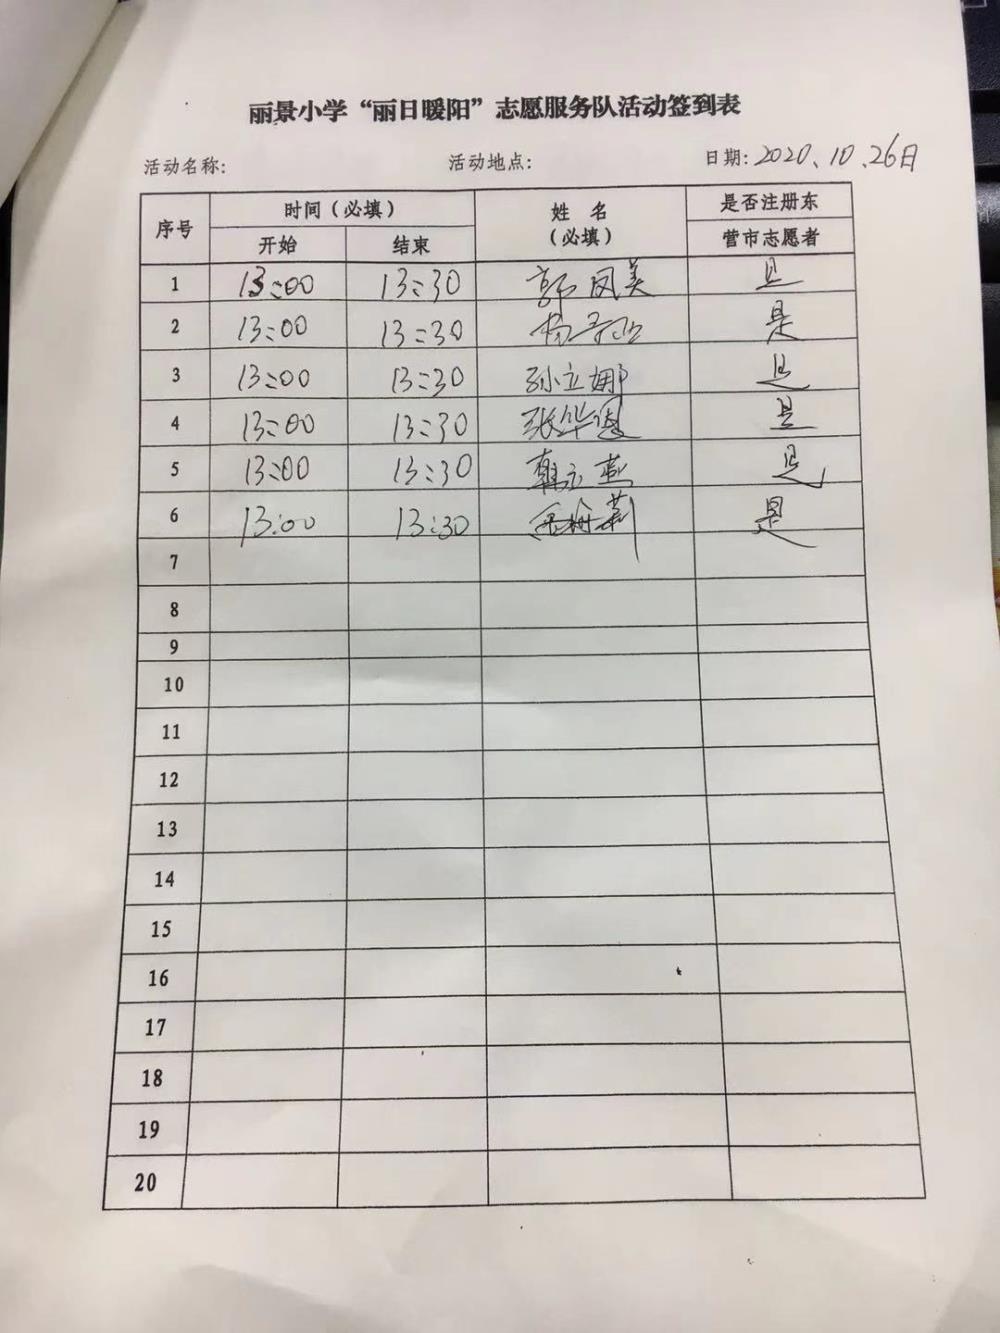 丽景小学“丽日暖阳”志愿服务队活动签到表
活动名称: 活动地点: 日期: 2020.10.26日
序号 时间（必填） 姓 名（必填） 是否注册东营市志愿者
开始 结束
1 13:00 13:30 郭凤美 是
2 13:00 13:30 杨 是
3 13:00 13:30 孙立娜 是
4 13:00 13:30 张华恩 是
5 13:00 13:30 韩立燕 是
6 13:00 13:30 莉 是
7
8
9
10
11
12
13
14
15
16
17
18
19
20